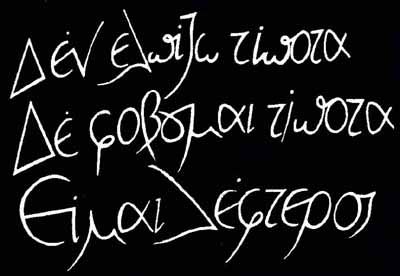 Δέν ελπίζω τίποτα
Δέ φοβȣμαι τίποτα
Είμαι Λέφτερος